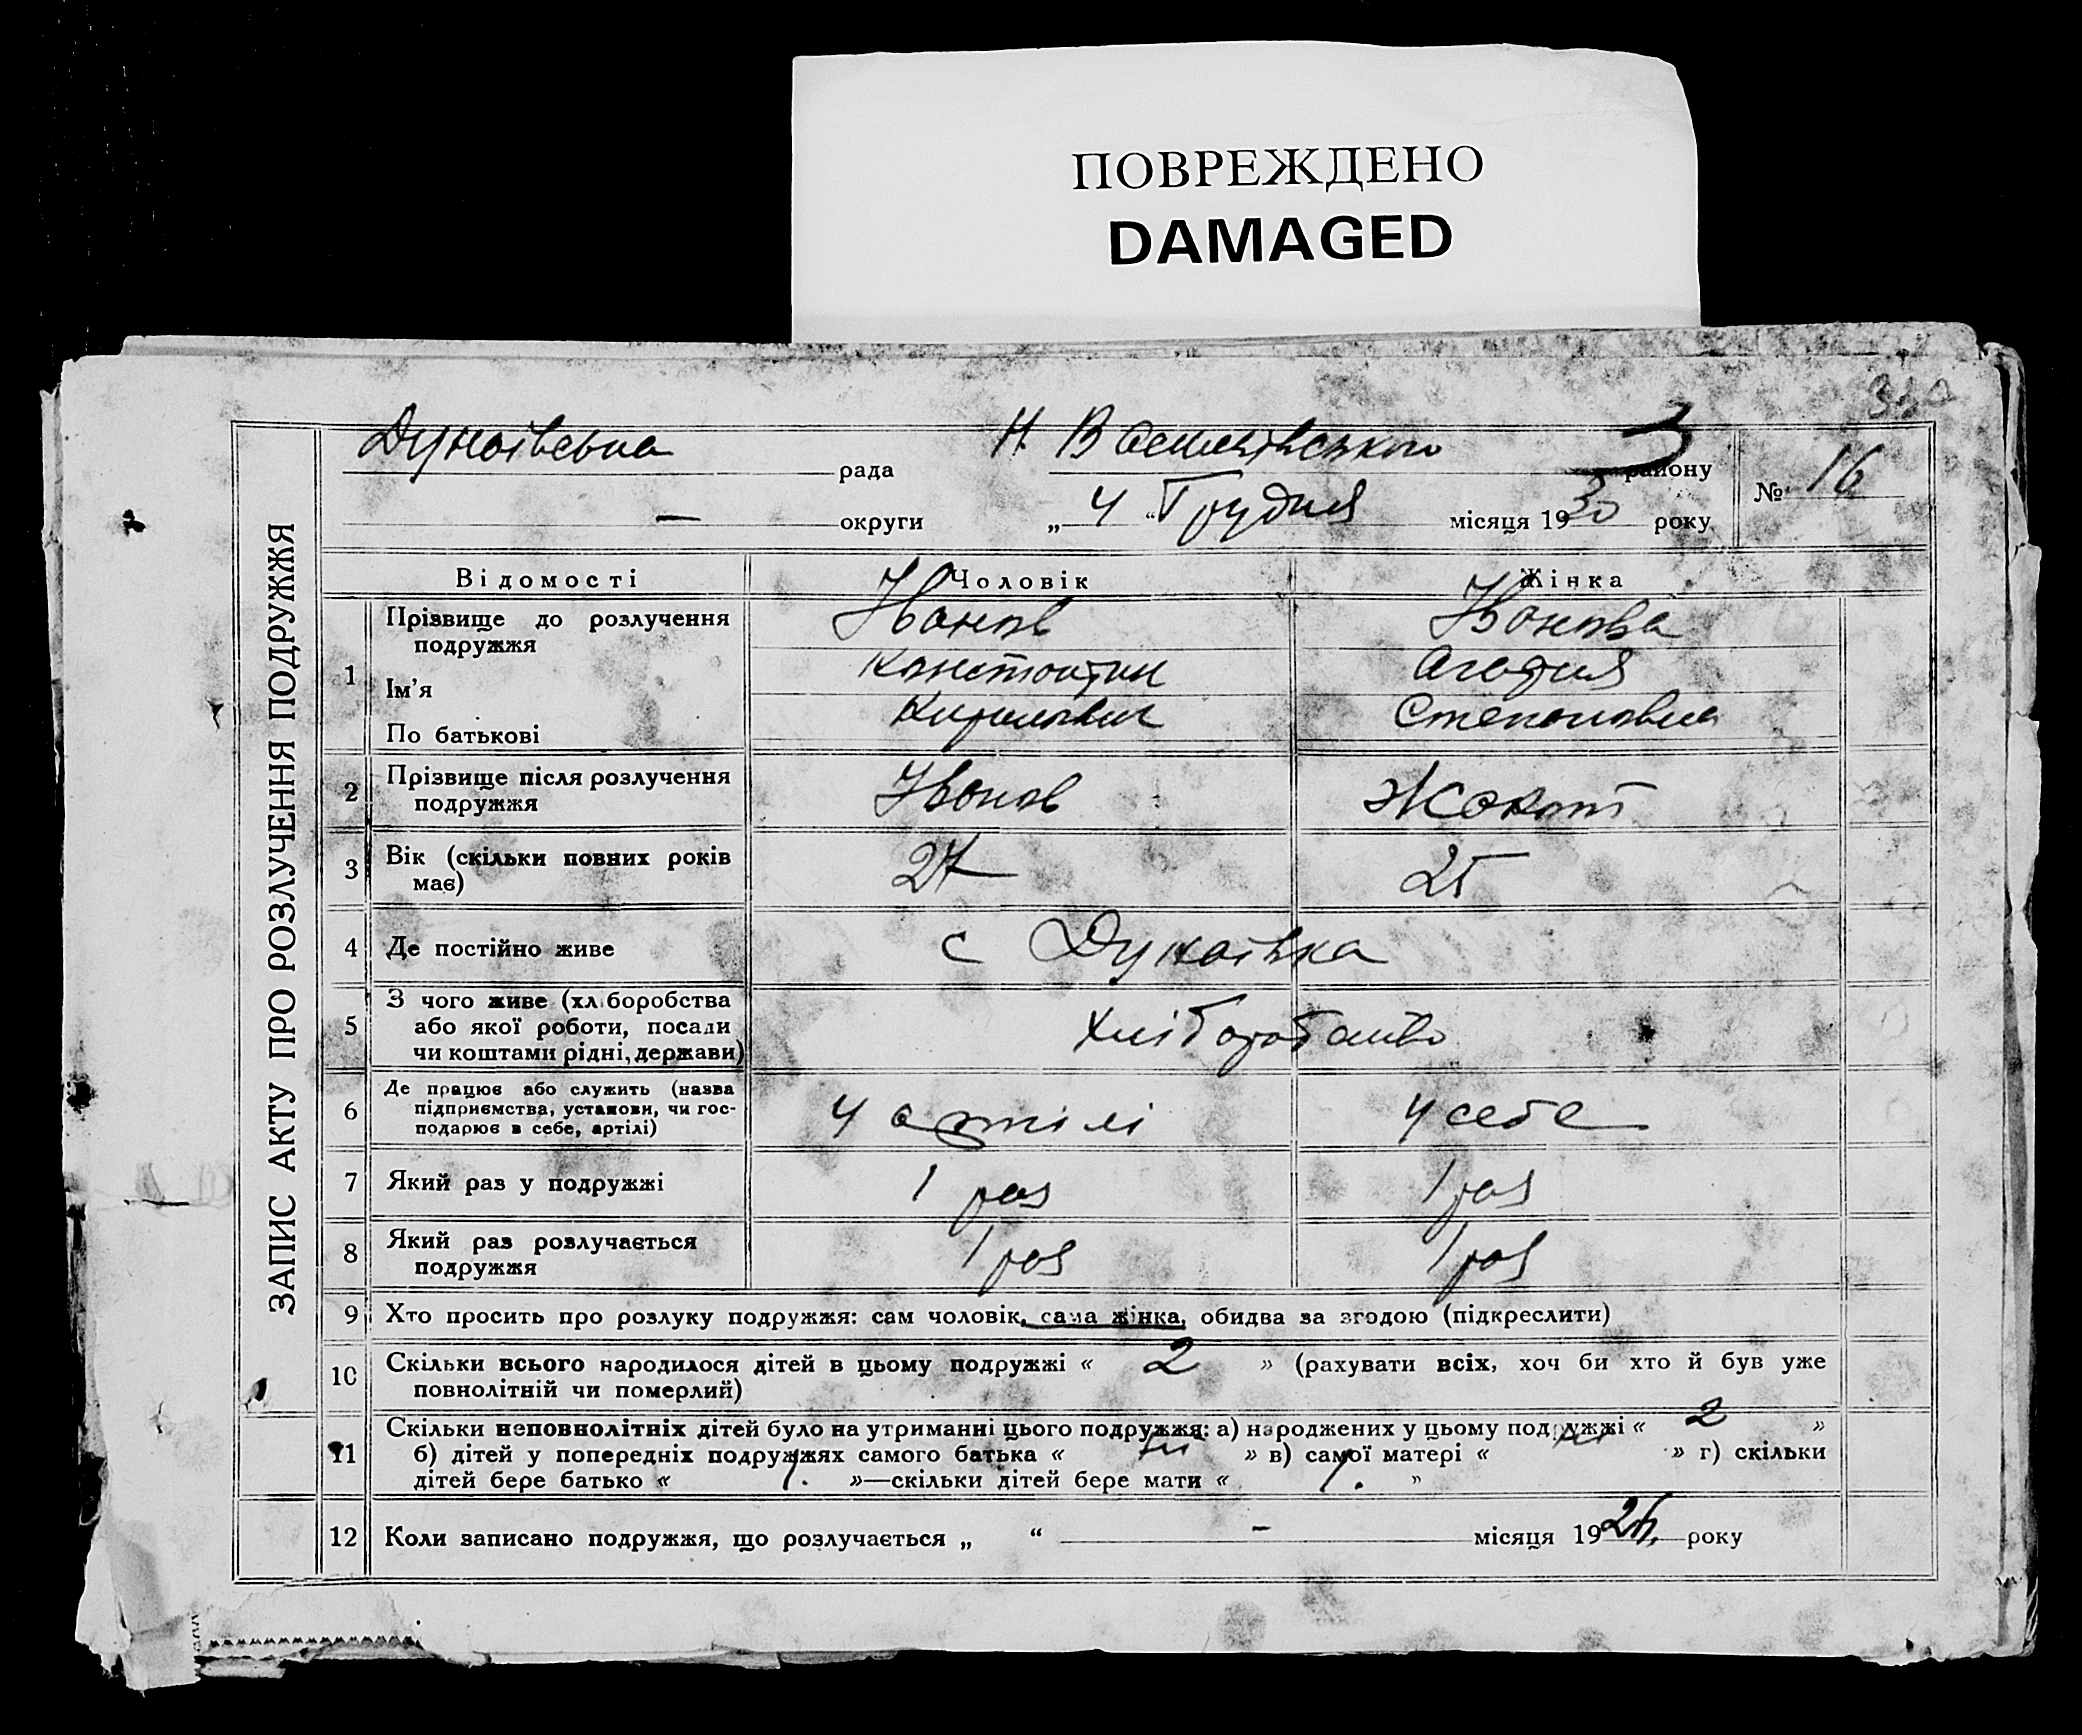 ПОВРЕЖДЕНО
DAMAGED
ЗАПИС АКТУ ПРО РОЗЛУЧЕННЯ ПОДРУЖЖЯ
Дунаївська рада Н Василівського району № 16
— округи „ 4 “ Грудня місяця 1930 року
Відомості Чоловік Жінка
1 Прізвище до розлучення подружжя Іванов Іванова
Ім'я Константин Агафия
По батькові Кирилович Степановна
2 Прізвище після розлучення подружжя Іванов
3 Вік (скільки повних років має) 27 25
4 Де постійно живе с Дунаївка
5 З чого живе (хліборобства або якої роботи, посади чи коштами рідні, держави) Хліборобство
6 Де працює або служить (назва підприємства, установи, чи господарює в себе, артілі) У артілі У себе
7 Який раз у подружжі 1 раз 1 раз
8 Який раз розлучається подружжя 1 раз 1 раз
9 Хто просить про розлуку подружжя: сам чоловік, сама жінка, обидва за згодою (підкреслити)
10 Скільки всього народилося дітей в цьому подружжі « 2 » (рахувати всіх, хоч би хто й був уже
повнолітній чи померлий)
11 Скільки неповнолітніх дітей було на утриманні цього подружжя: а) народжених у цьому подружжі « 2 »
б) дітей у попередніх подружжях самого батька « » в) самої матері « » г) скільки
дітей бере батько « 1. »—скільки дітей бере мати « 1. »
12 Коли записано подружжя, що розлучається „ “ — місяця 1926 року